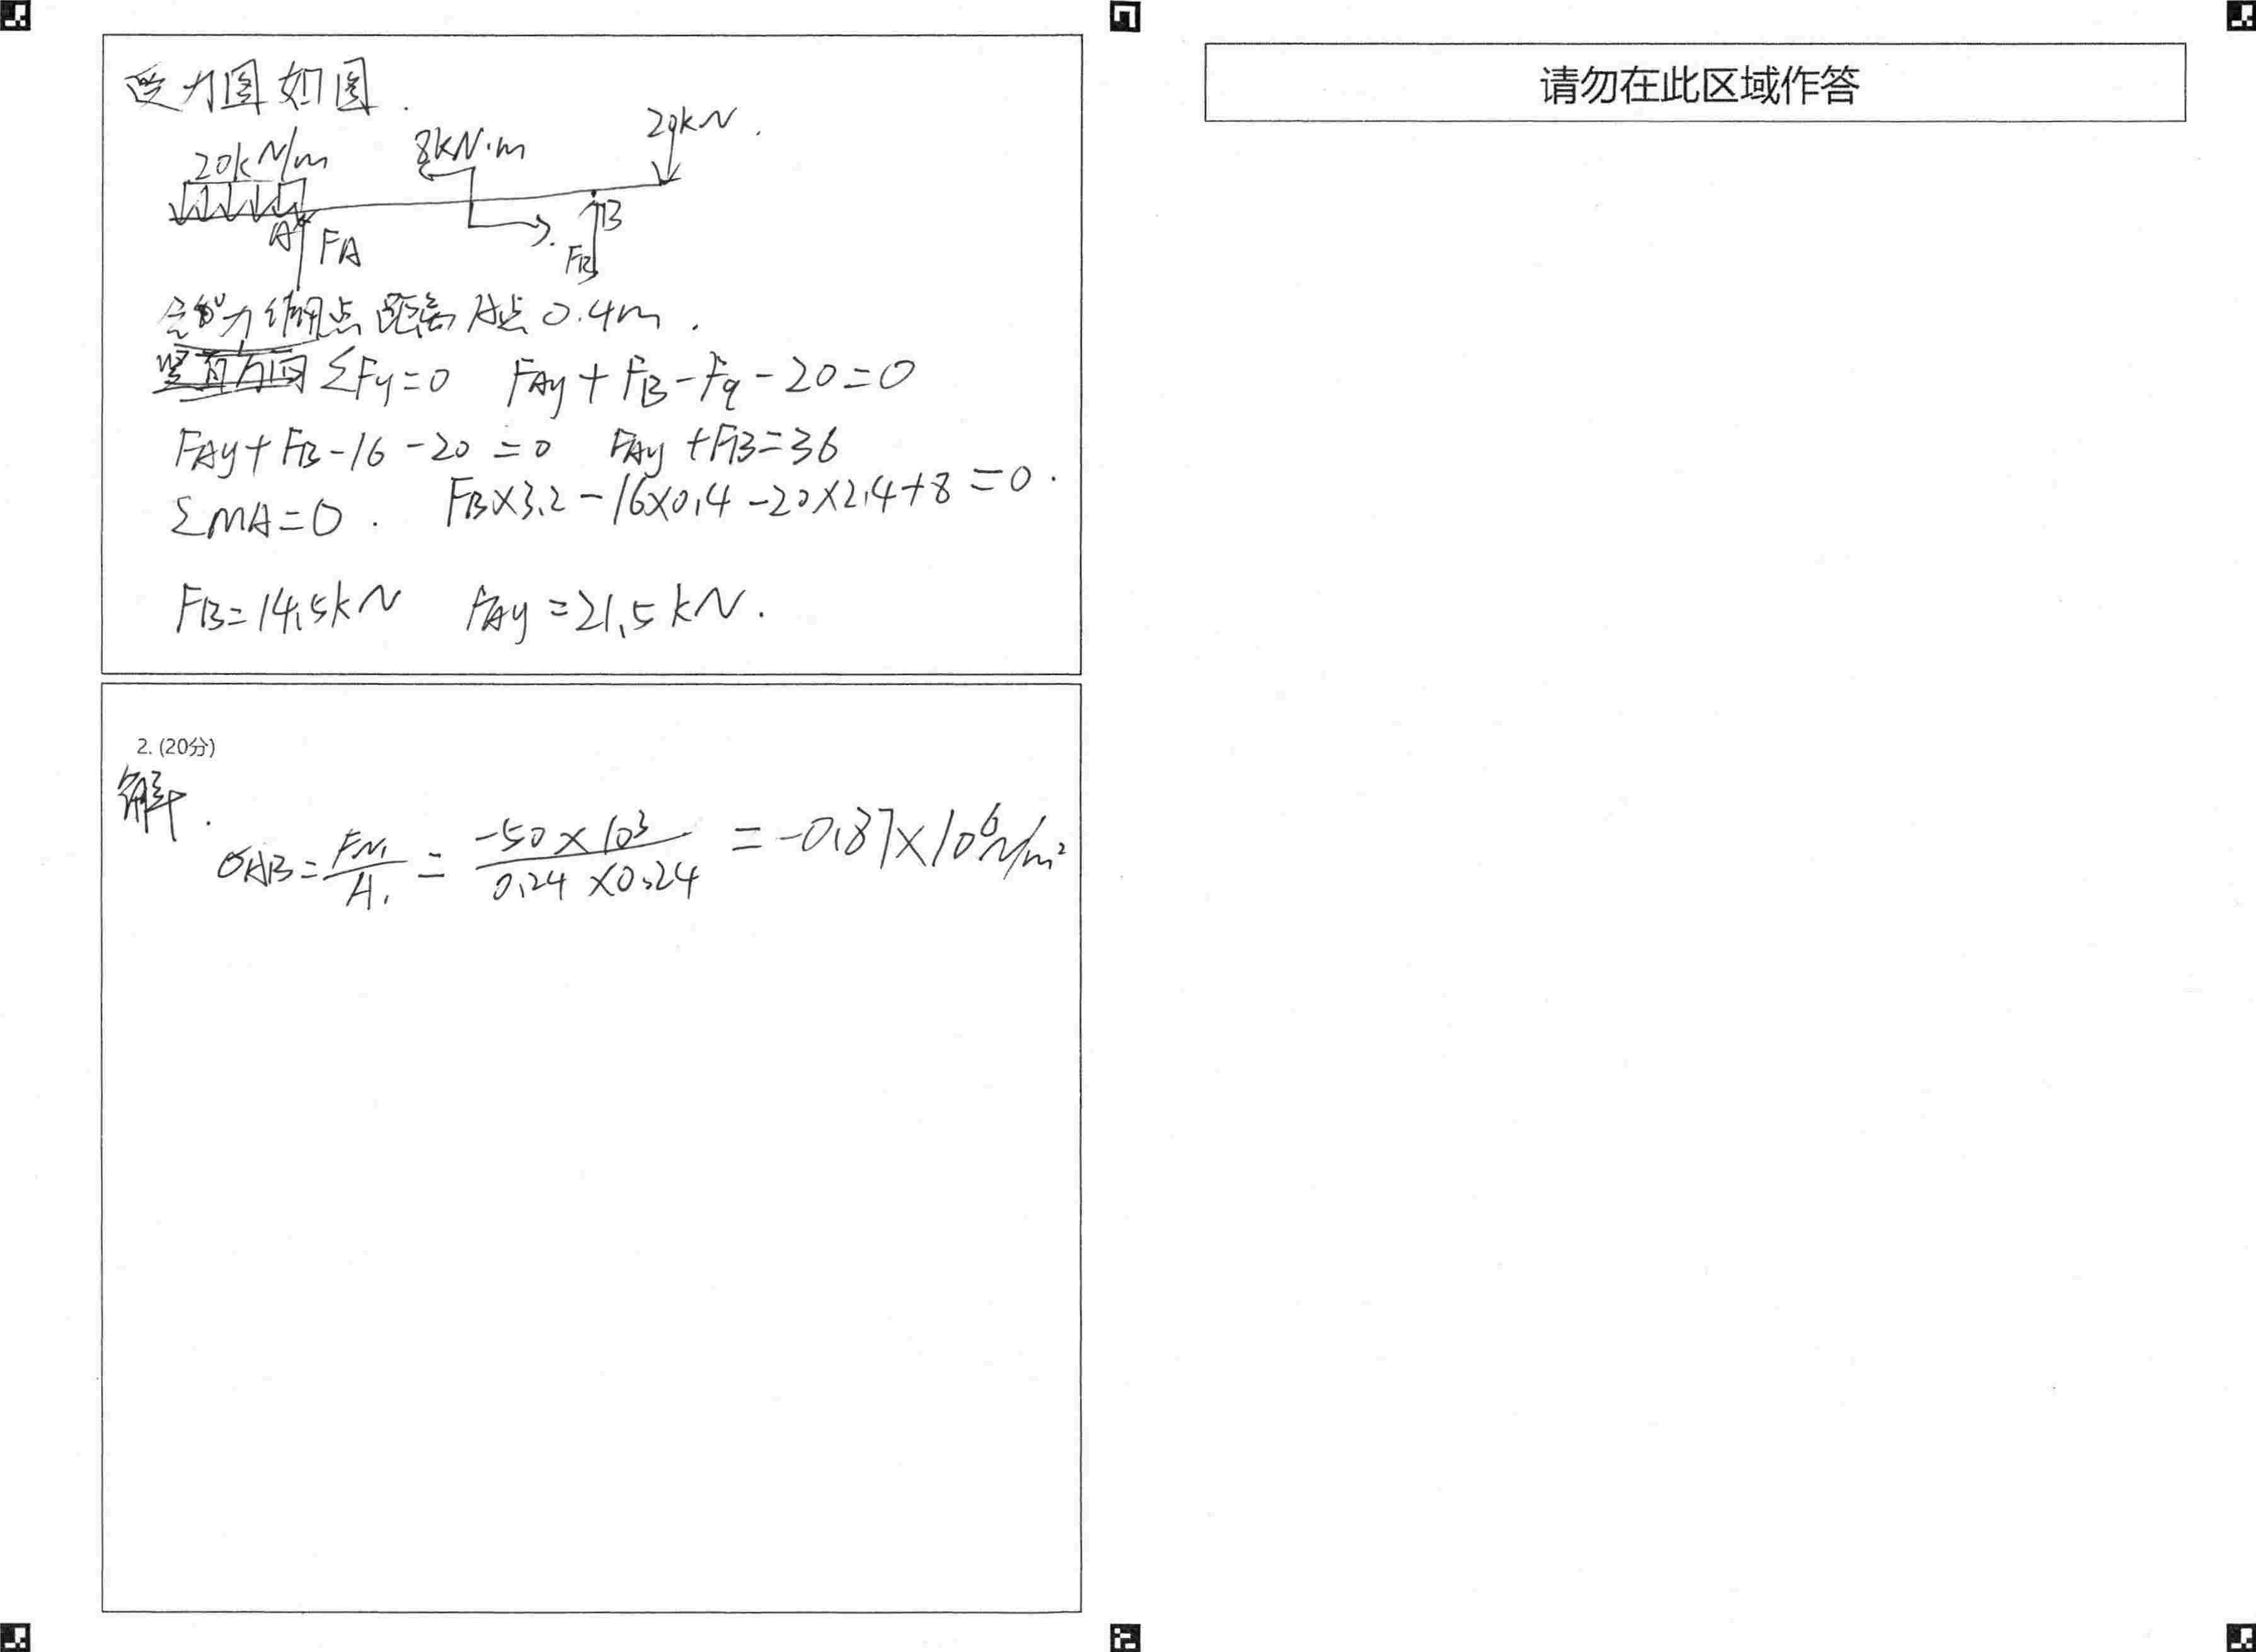 受力图如图.
20kN/m 8kN·m 20kN.
A FA B
FB
合力作用点距离A点0.4m.
竖直方向 ΣFy=0 FAy+FB-Fq-20=0
FAy+FB-16-20=0 FAy+FB=36
ΣMA=0. FB×3.2-16×0.4-20×2.4+8=0.
FB=14.5kN FAy=21.5kN.
2. (20分)
解.
σAB=FN1/A1=-50×10³/0.24×0.24=-0.87×10⁶N/m²
请勿在此区域作答